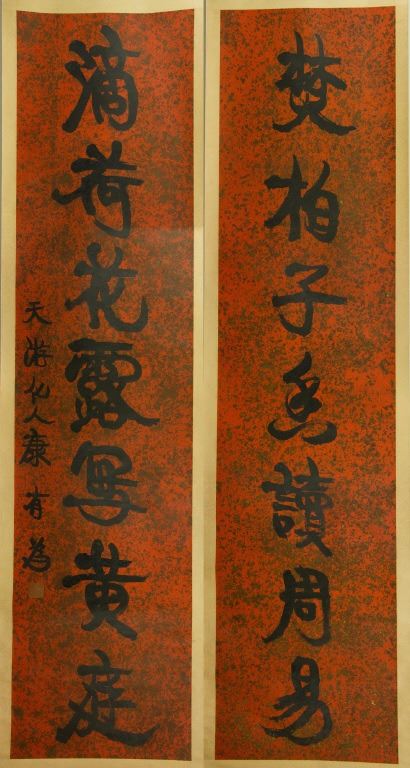 焚柏子香讀周易
滴荷花露写黄庭
天游化人康有為